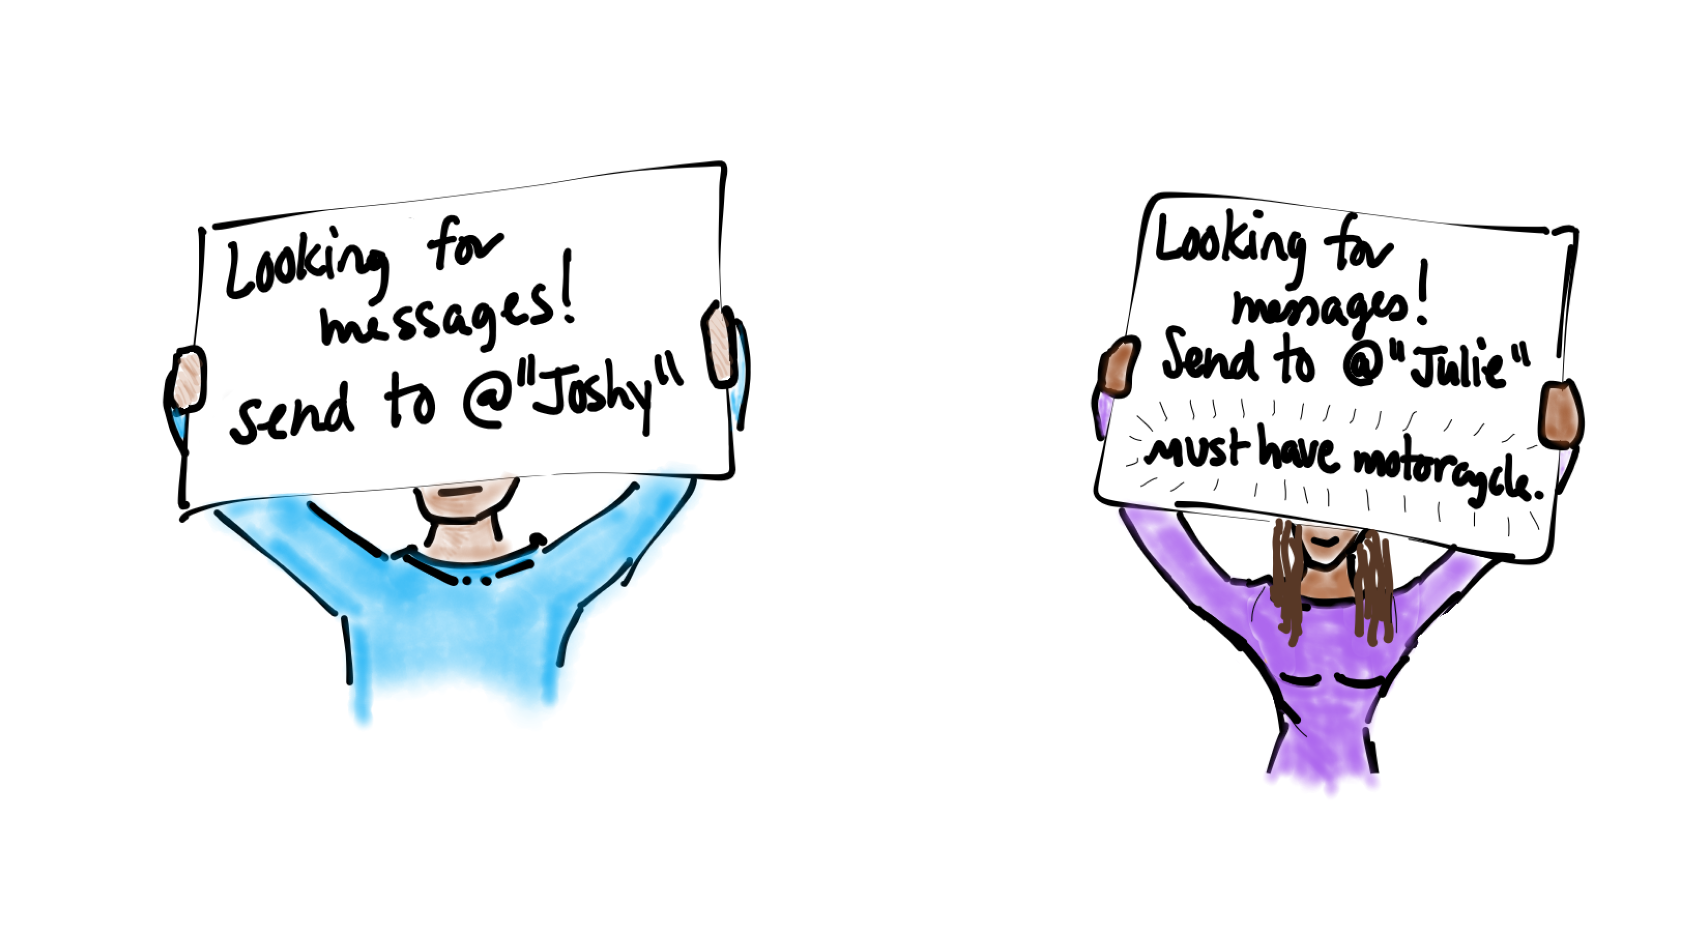 Looking for
messages!
send to @"Joshy"
Looking for
messages!
Send to @"Julie"
must have motorcycle.